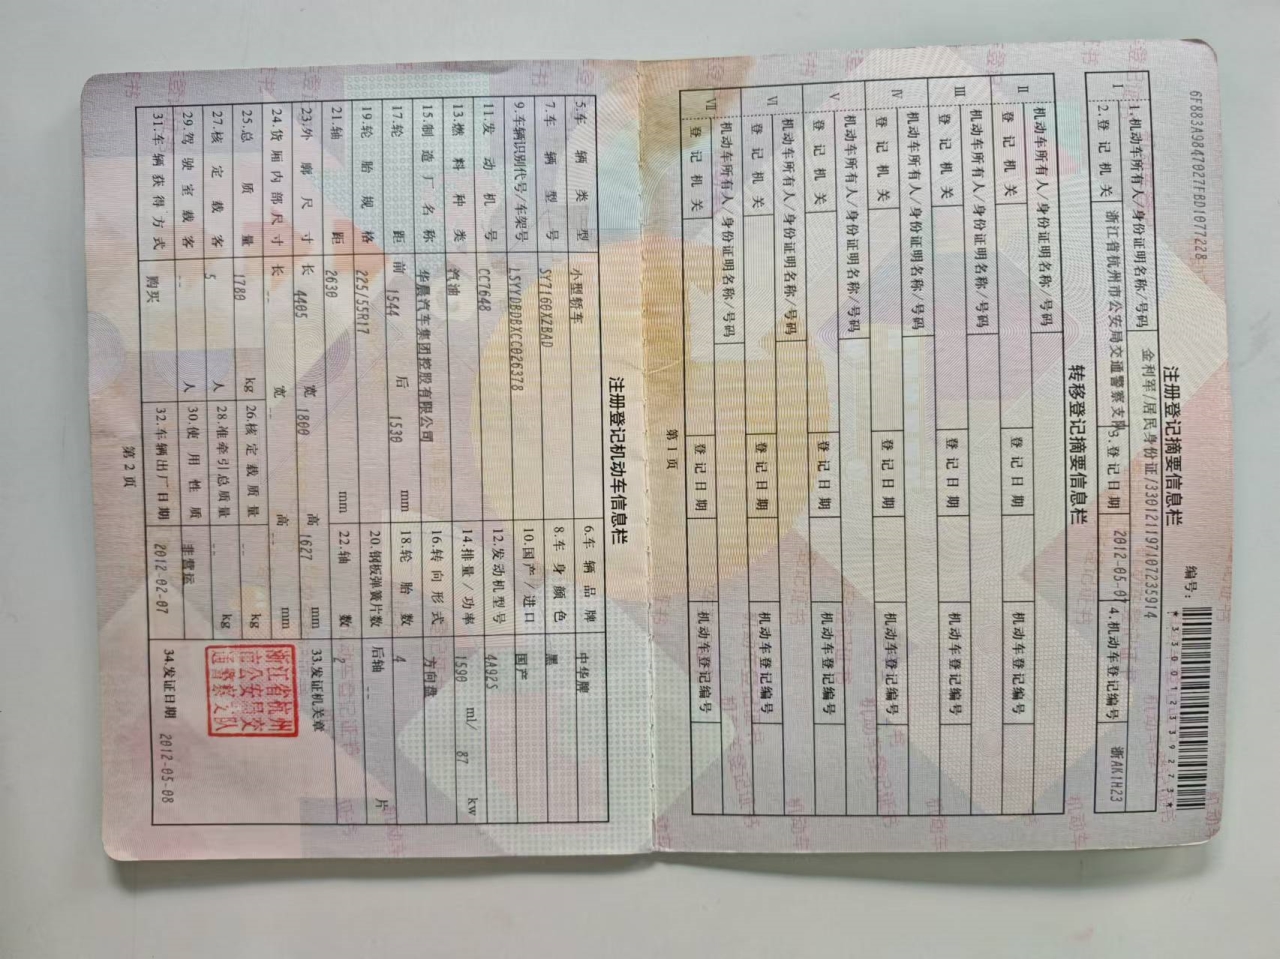 6F883A9847027FBD1077228
注册登记摘要信息栏
编号：
*330012339273*
Ⅰ
1.机动车所有人/身份证明名称/号码 金利军/居民身份证/330121197107235914
2.登记机关 浙江省杭州市公安局交通警察支队 3.登记日期 2012-05-07 4.机动车登记编号 浙AK1H23
转移登记摘要信息栏
Ⅱ
机动车所有人/身份证明名称/号码
登记机关 登记日期 机动车登记编号
Ⅲ
机动车所有人/身份证明名称/号码
登记机关 登记日期 机动车登记编号
Ⅳ
机动车所有人/身份证明名称/号码
登记机关 登记日期 机动车登记编号
Ⅴ
机动车所有人/身份证明名称/号码
登记机关 登记日期 机动车登记编号
Ⅵ
机动车所有人/身份证明名称/号码
登记机关 登记日期 机动车登记编号
Ⅶ
机动车所有人/身份证明名称/号码
登记机关 登记日期 机动车登记编号
第1页
注册登记机动车信息栏
5.车辆类型 小型轿车 6.车辆品牌 中华牌
7.车辆型号 SY7160XZBAD 8.车身颜色 黑
9.车辆识别代号/车架号 LSYYDBDBXCC026378 10.国产/进口 国产
11.发动机号 CC7648 12.发动机型号 4A92S
13.燃料种类 汽油 14.排量/功率 1590 ml/ 87 kw
15.制造厂名称 华晨汽车集团控股有限公司 16.转向形式 方向盘
17.轮距 前 1544 后 1530 mm 18.轮胎数 4
19.轮胎规格 225/55R17 20.钢板弹簧片数 后轴 -- 片
21.轴距 2630 mm 22.轴数 2
23.外廓尺寸 长 4405 宽 1800 高 1627 mm
33.发证机关章
浙江省杭州市公安局交通警察支队
24.货厢内部尺寸 长 -- 宽 -- 高 -- mm
25.总质量 1780 kg 26.核定载质量 -- kg
27.核定载客 5 人 28.准牵引总质量 -- kg
29.驾驶室载客 -- 人 30.使用性质 非营运
31.车辆获得方式 购买 32.车辆出厂日期 2012-02-07 34.发证日期 2012-05-08
第2页